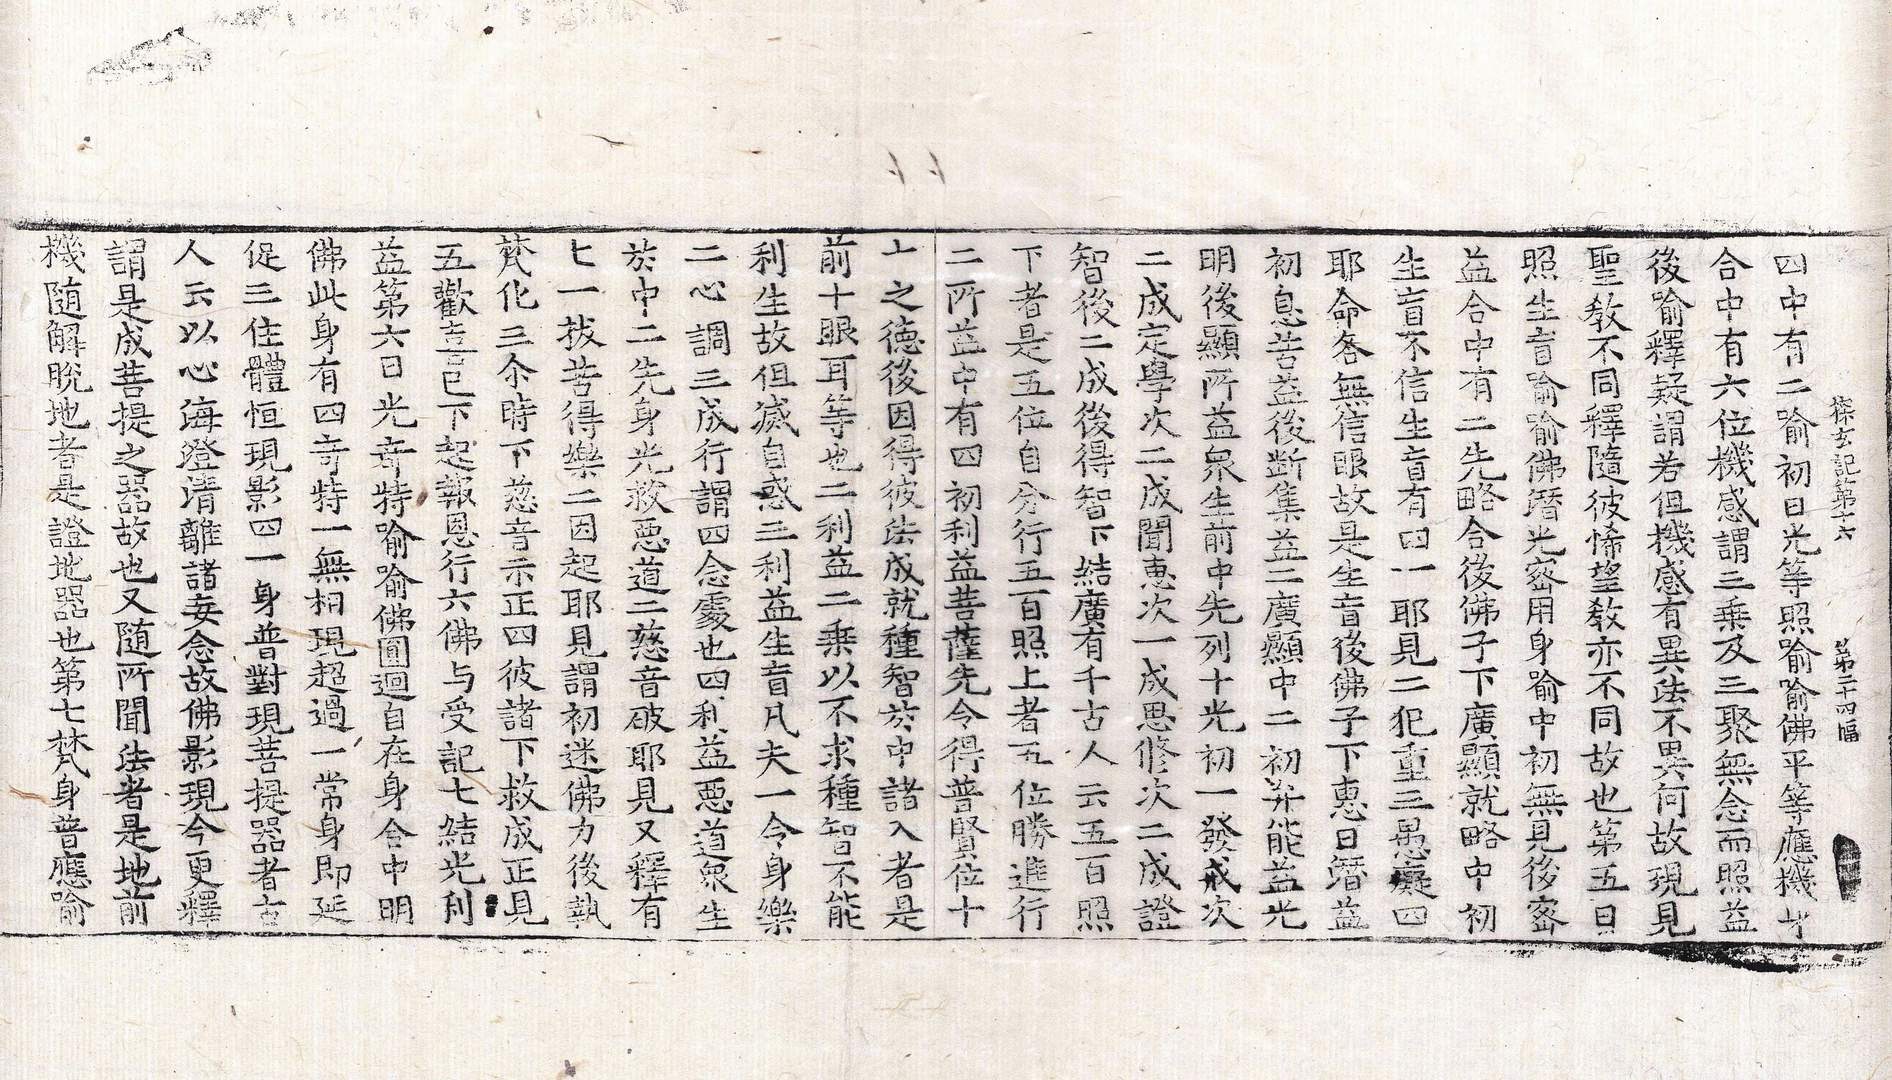 探玄記第十六 第二十四幅
四中有二喻初日光等照喻喻佛平等應機身
合中有六位機感謂三乗及三聚無念而照益
後喻釋疑謂若但機感有異法不異何故現見
聖教不同釋隨彼悕望教亦不同故也第五日
照生盲喻喻佛潛光密用身喻中初無見後密
益合中有二先略合後佛子下廣顯就略中初
生盲不信生盲有四一耶見二犯重三愚癡四
耶命各無信眼故是生盲後佛子下惠日潛益
初息苦益後断集益二廣顯中二初弁能益光
明後顯所益衆生前中先列十光初一發戒次
二成定學次二成聞惠次一成思修次二成證
智後二成後得智下結廣有千古人云五百照
下者是五位自分行五百照上者五位勝進行
二所益中有四初利益菩薩先令得普賢位十
上之德後因得彼法成就種智於中諸入者是
前十眼耳等也二利益二乗以不求種智不能
利生故但滅自惑三利益生盲凡夫一令身樂
二心調三成行謂四念處也四利益悪道衆生
於中二先身光救悪道二慈音破耶見又釋有
七一拔苦得樂二因起耶見謂初迷佛力後執
梵化三尒時下慈音示正四彼諸下救成正見
五歡喜已下起報恩行六佛与受記七結光利
益第六日光奇特喻喻佛圓迴自在身合中明
佛此身有四奇特一無相現超過一常身即延
促三住體恒現影四一身普對現菩提器者古
人云以心海澄清離諸妄念故佛影現今更釋
謂是成菩提之器故也又随所聞法者是地前
機随解脫地者是證地器也第七梵身普應喻